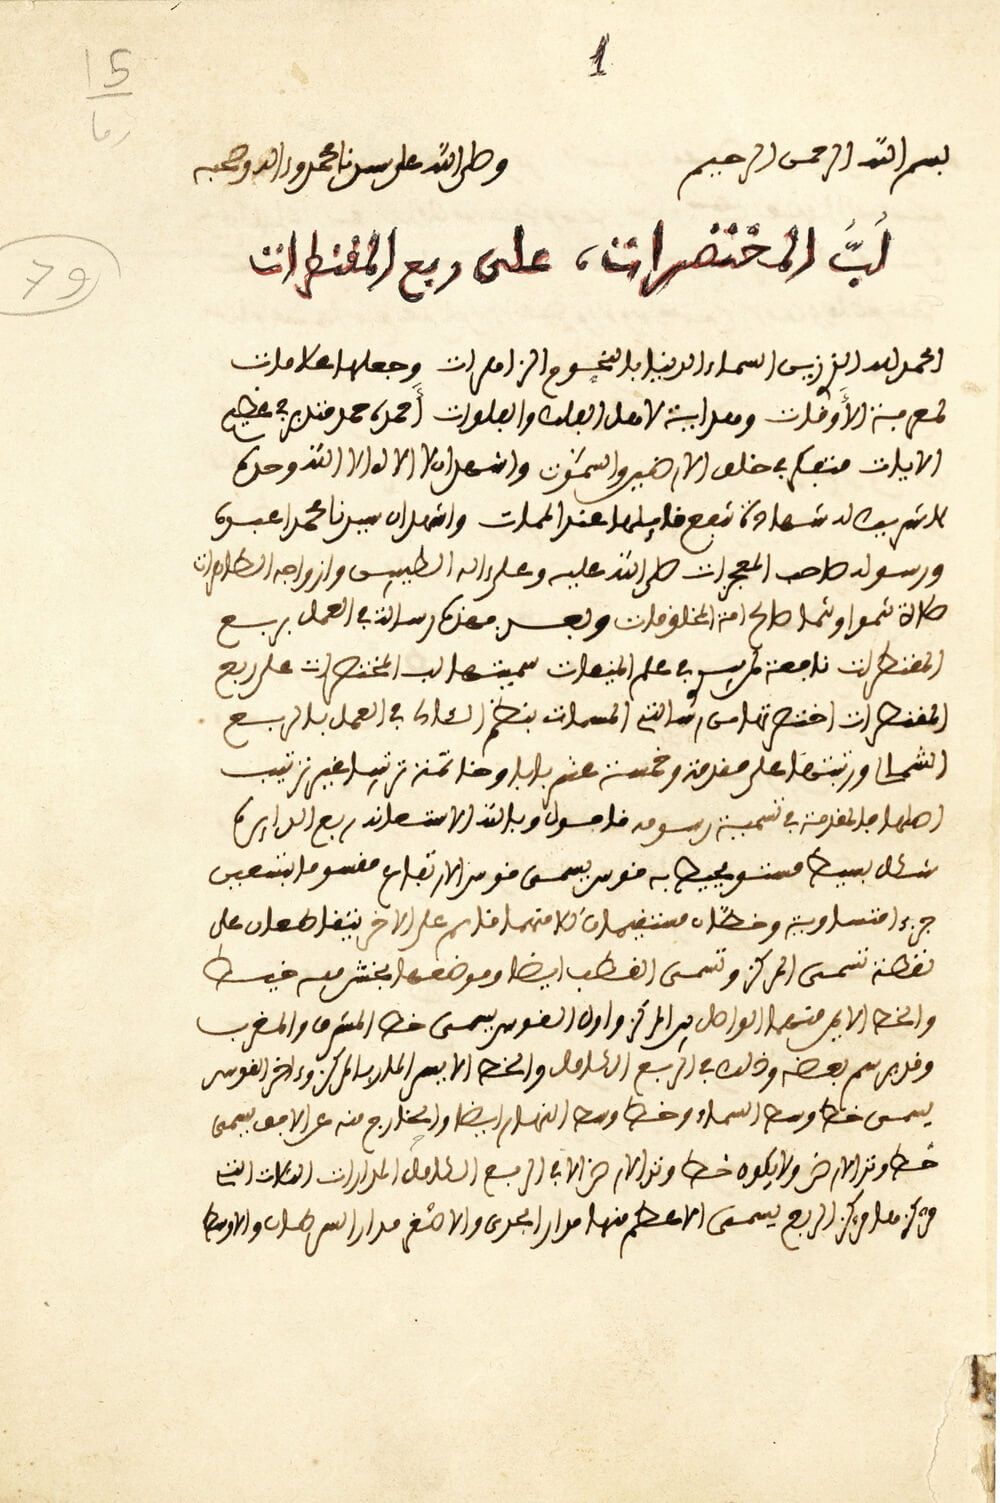 1
15
79
بسم الله الرحمن الرحيم وصلى الله على سيدنا محمد وءاله وصحبه
لُبُّ المختصرات، على ربع المقنطرات
الحمد لله الذي زين السماء الدنيا بالنجوم الزاهرات وجعلها علامات
لمعرفة الأوقات وهداية لأهل البلد والفلوات أحمده حمد متدبر في عظيم
الايات متفكر في خلق الارضين والسموت واشهد ان لا اله الا الله وحده
لا شريك له شهادة تنفع قايلها عند الممات واشهد ان سيدنا محمدا عبده
ورسوله صاحب المعجزات صلى الله عليه وعلى ءاله الطيبين وازواجه الطاهرات
صلاة نسموا وننما صالح امة المخلوقات وبعد فهذه رسالة في العمل بربع
المقنطرات نافعة لمريد في علم الميقات سميتها لب المختصرات على ربع
المقنطرات اختصرتها من رسالتي المسمات بنظم في العمل بالربع
الشمالي ورتبتها على مقدمة وخمسة عشر بابا وخاتمة ترتيبا غير ترتيب
اصلها فالمقدمة في تسمية رسومه فاقول وبالله الاستعانة ربع الدايرة
شكل بسيط مستو يحيط به قوس يسمى قوس الارتفاع مقسوم بتسعين
جزءا متساوية وخطان مستقيمان كلا منهما قايم على الاخر يتقاطعان على
نقطة تسمى المركز وتسمى القطب ايضا وموضعها يخش فيه خيط
والخط الايمن منهما الواصل بين المركز واول القوس يسمى خط المشرق والمغرب
وقد يرسم بعضه وذلك في الربع الكامل والخط الايسر المار بالمركز وءاخر القوس
يسمى خط وسط السماء وخط وسط النهار ايضا والخارج منه عن الافق يسمى
خط وتد الارض ولا يكون خط وتد الارض الا في الربع الكامل المدارات الثلاث التي
مركزها مركز الربع يسمى الاعظم منها مدار الجدي والاصغر مدار السرطان والاوسط